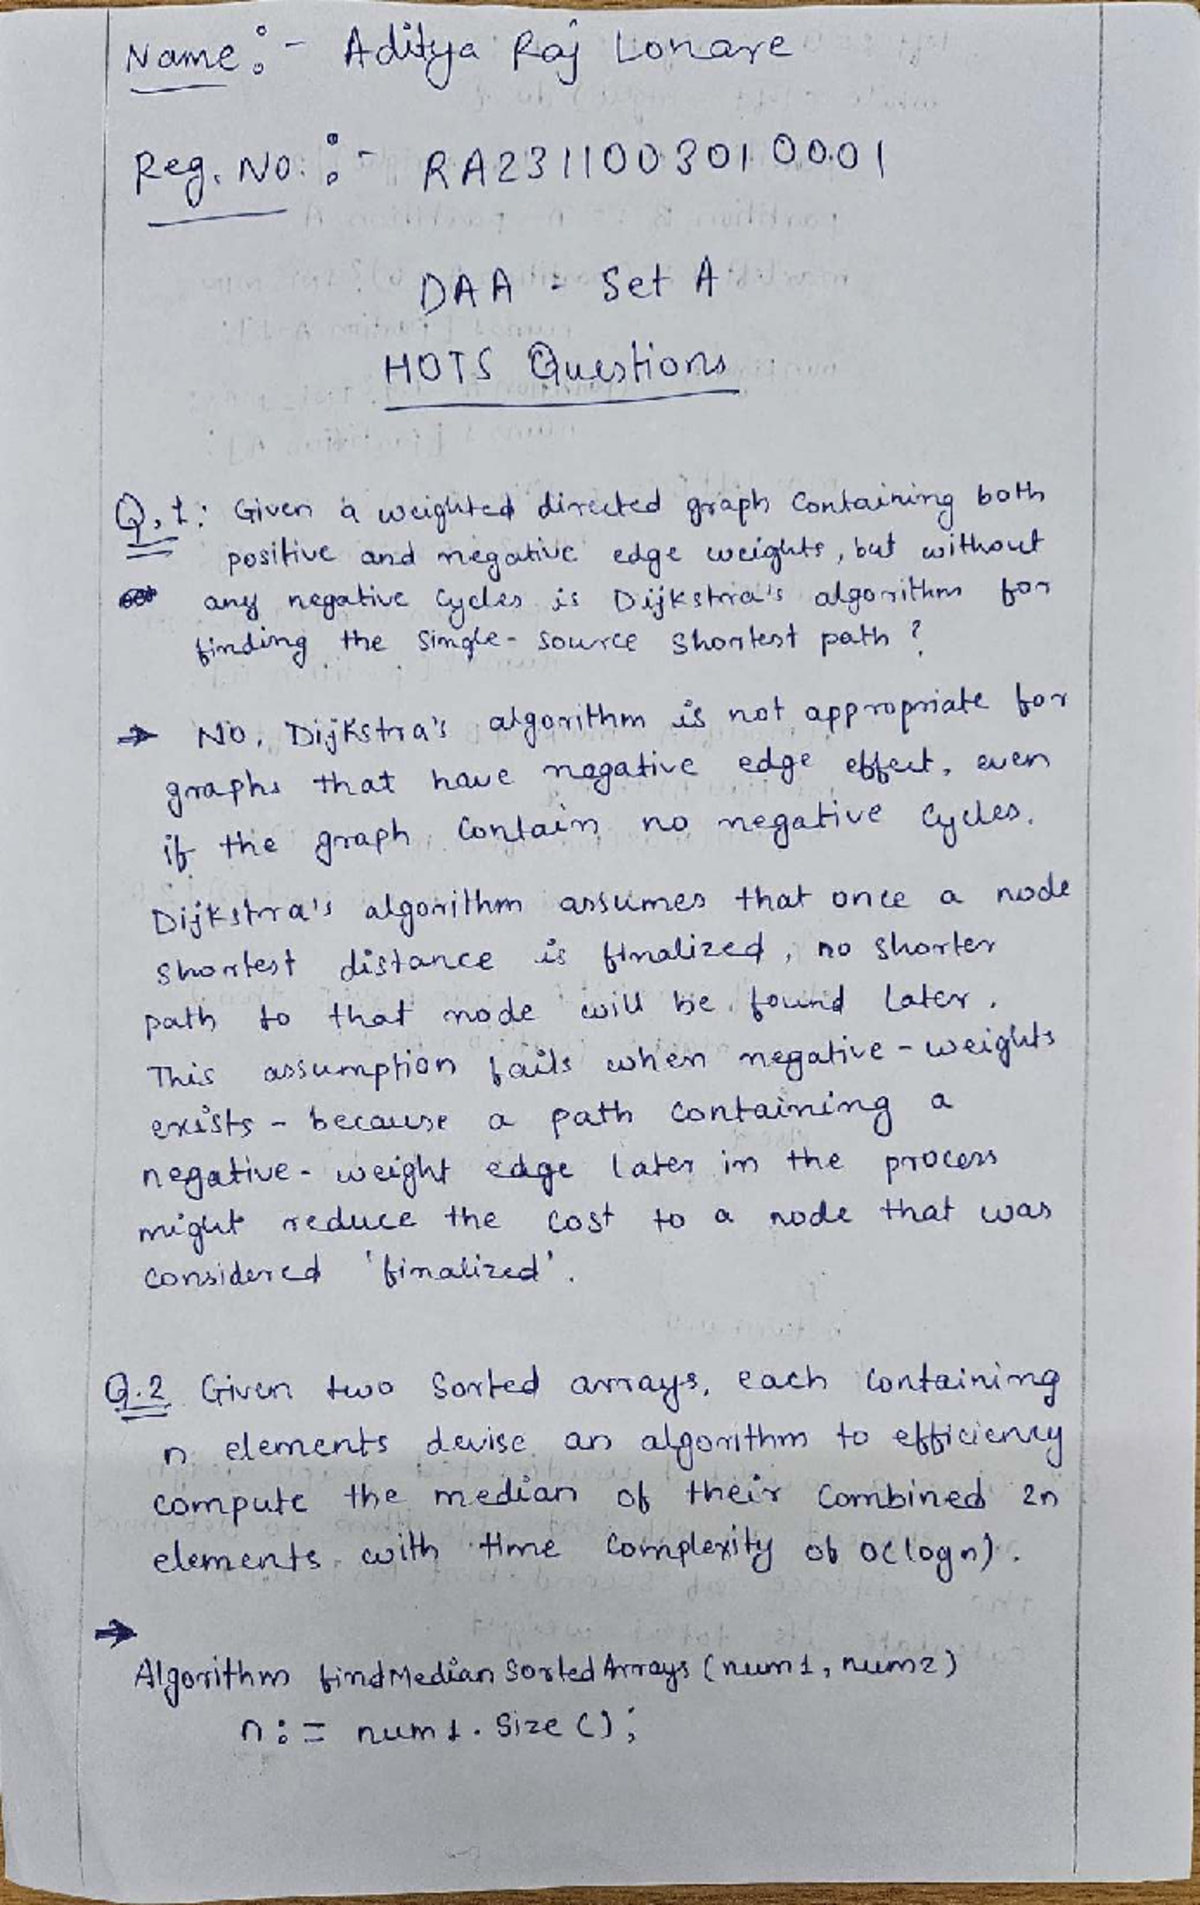 Name :- Aditya Raj Lonare
Reg. No. :- RA2311003010001
DAA - Set A
HOTS Questions
Q.1: Given a weighted directed graph containing both
positive and negative edge weights, but without
any negative cycles is Dijkstra's algorithm for
finding the single-source shortest path?
→ No. Dijkstra's algorithm is not appropriate for
graphs that have nagative edge effect, even
if the graph contain no negative cycles.
Dijkstra's algorithm assumes that once a node
shortest distance is finalized, no shorter
path to that node will be found later.
This assumption fails when negative-weights
exists - because a path containing a
negative-weight edge later in the process
might reduce the cost to a node that was
considered 'finalized'.
Q.2 Given two sorted arrays, each containing
n elements devise an algorithm to efficiency
compute the median of their combined 2n
elements with time complexity of O(log n).
→
Algorithm findMedianSortedArrays (num1, num2)
n := num1.size();